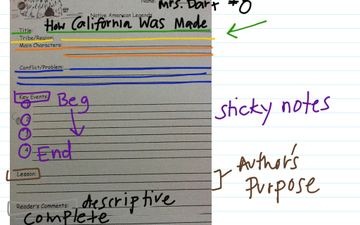 Name: Mrs. Dart #0
Native American Legends
Title: How California Was Made
Tribe/Region:
Main Characters:
Conflict/Problem:
Key Events Beg
1
2
3
4 End
sticky notes
Lesson:
Author's
Purpose
Reader's Comments: descriptive
complete